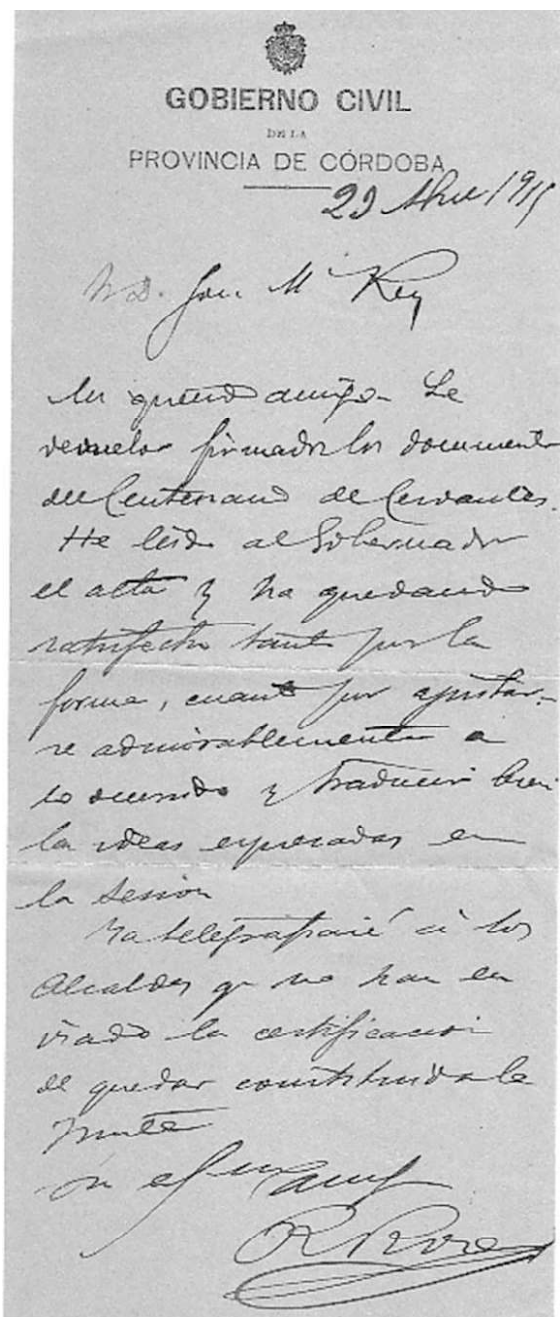 GOBIERNO CIVIL
DE LA
PROVINCIA DE CÓRDOBA
29 Abril 1915
Sr. D. José Mª Rey
Mi querido amigo. Le
devuelvo firmados los documentos
del Centenario de Cervantes.
He leído al Gobernador
el acta y ha quedando
satisfecho tanto por la
forma, cuanto por ajustar-
se admirablemente a
lo ocurrido y traducir bien
la ideas expresadas en
la sesión
Ya telegrafiaré á los
Alcaldes q no han en
viado la certificacion
de quedar constituida la
Junta
amigo
R